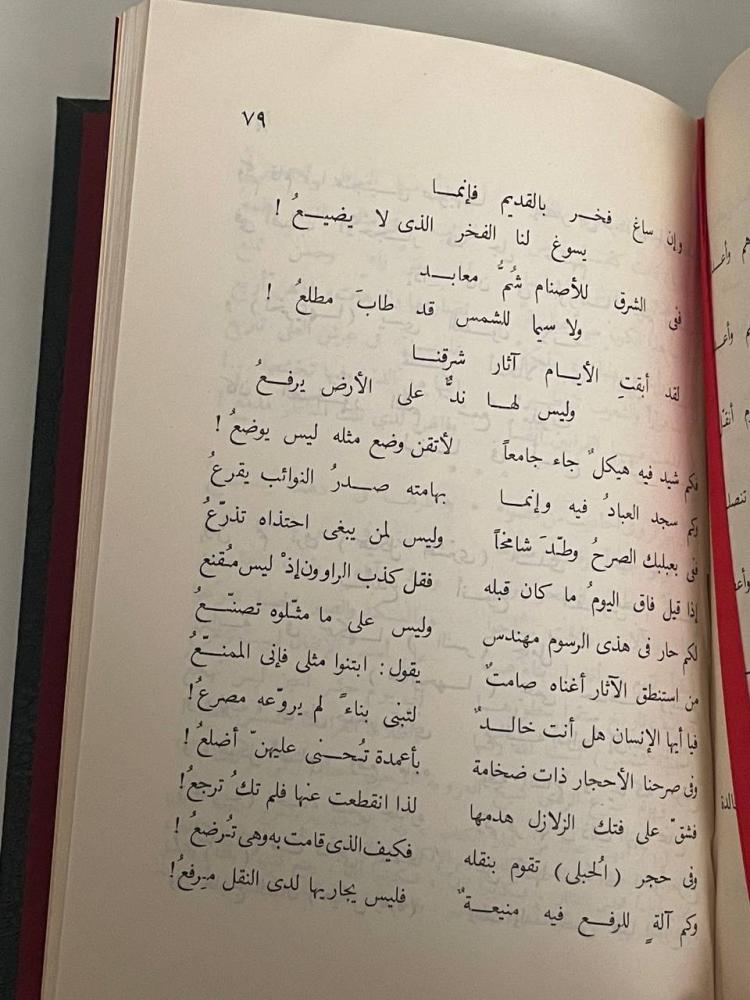 ٧٩
وإن ساغ فخر بالقديم فإنمــا
يسوغ لنا الفخر الذى لا يضيــعُ !
فى الشرق للأصنام شُمُّ معابــد
ولا سيما للشمس قد طابَ مطلعُ !
لقد أبقتِ الأيــام آثار شرقنــا
وليس لهــا ندٌّ على الأرض يرفــعُ
فكم شيد فيه هيكلٌ جاء جامعاً لأتقن وضع مثله ليس يوضعُ !
وكم سجد العبادُ فيه وإنمــا بهامته صــدرُ النوائب يقرعُ
فى بعبلبك الصرحُ وطّدَ شامخاً وليس لمن يبغى احتذاه تذرّعُ
إذا قيل فاق اليومُ ما كان قبله فقل كذب الراوون إذْ ليس مُقنع
لكم حار فى هذى الرسوم مهندس وليس على ما مثّلوه تصنّــعُ
من استنطق الآثار أغناه صامتٌ يقول : ابتنوا مثلى فإنى الممنــّعُ
فيا أيها الإنسان هل أنت خالــدٌ لتبنى بناءً لم يروّعه مصرعُ !
وفى صرحنا الأحجار ذات ضخامة بأعمدة تُحــنى عليهنّ أضلعُ !
فشقّ على فتك الزلازل هدمها لذا انقطعت عنها فلم تكُ ترجعُ !
وفى حجر (الحُبلى) تقوم بنقله فكيف الذى قامت به وهى تُرضعُ !
وكم آلةٍ للرفــع فيه منيعــةٌ فليس يجاريها لدى النقل مِرفعُ !
هم
وأعــد